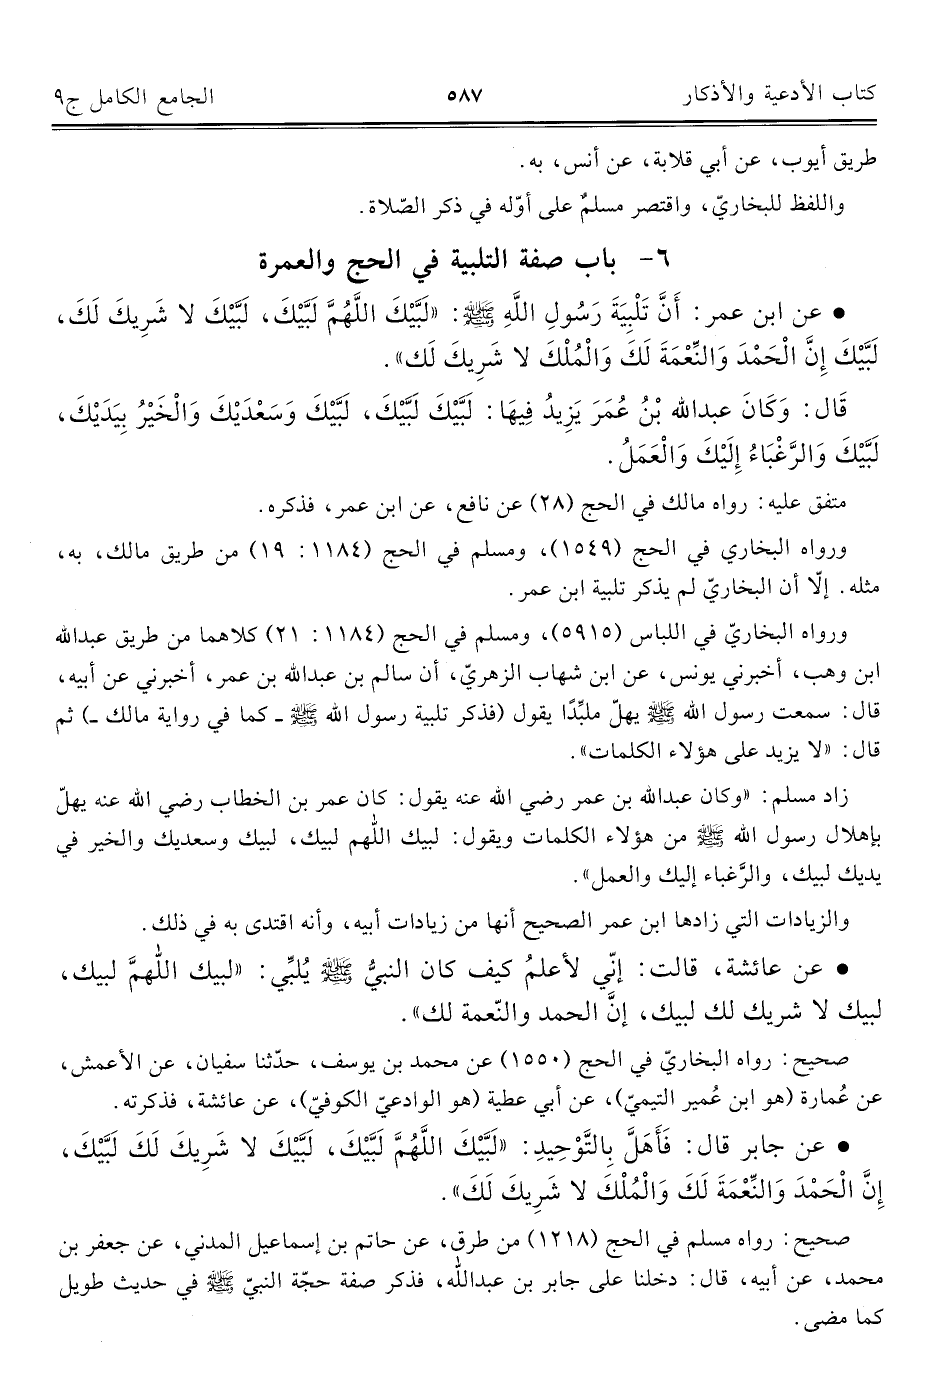 كتاب الأدعية والأذكار ٥٨٧ الجامع الكامل ج٩
طريق أيوب، عن أبي قلابة، عن أنس، به.
واللفظ للبخاريّ، واقتصر مسلمٌ على أوّله في ذكر الصّلاة.
٦- باب صفة التلبية في الحج والعمرة
• عن ابن عمر: أَنَّ تَلْبِيَةَ رَسُولِ اللَّهِ ﷺ: «لَبَّيْكَ اللَّهُمَّ لَبَّيْكَ، لَبَّيْكَ لا شَرِيكَ لَكَ،
لَبَّيْكَ إِنَّ الْحَمْدَ وَالنِّعْمَةَ لَكَ وَالْمُلْكَ لا شَرِيكَ لَك».
قَالَ: وَكَانَ عبدالله بْنُ عُمَرَ يَزِيدُ فِيهَا: لَبَّيْكَ لَبَّيْكَ، لَبَّيْكَ وَسَعْدَيْكَ وَالْخَيْرُ بِيَدَيْكَ،
لَبَّيْكَ وَالرَّغْبَاءُ إِلَيْكَ وَالْعَمَلُ.
متفق عليه: رواه مالك في الحج (٢٨) عن نافع، عن ابن عمر، فذكره.
ورواه البخاري في الحج (١٥٤٩)، ومسلم في الحج (١١٨٤: ١٩) من طريق مالك، به،
مثله. إلّا أن البخاريّ لم يذكر تلبية ابن عمر.
ورواه البخاريّ في اللباس (٥٩١٥)، ومسلم في الحج (١١٨٤: ٢١) كلاهما من طريق عبدالله
ابن وهب، أخبرني يونس، عن ابن شهاب الزهريّ، أن سالم بن عبدالله بن عمر، أخبرني عن أبيه،
قال: سمعت رسول الله ﷺ يهلّ ملبِّدًا يقول (فذكر تلبية رسول الله ﷺ ـ كما في رواية مالك ـ) ثم
قال: «لا يزيد على هؤلاء الكلمات».
زاد مسلم: «وكان عبدالله بن عمر رضي الله عنه يقول: كان عمر بن الخطاب رضي الله عنه يهلّ
بإهلال رسول الله ﷺ من هؤلاء الكلمات ويقول: لبيك اللّهم لبيك، لبيك وسعديك والخير في
يديك لبيك، والرَّغباء إليك والعمل».
والزيادات التي زادها ابن عمر الصحيح أنها من زيادات أبيه، وأنه اقتدى به في ذلك.
• عن عائشة، قالت: إنّي لأعلمُ كيف كان النبيُّ ﷺ يُلبِّي: «لبيك اللّهمَّ لبيك،
لبيك لا شريك لك لبيك، إنَّ الحمد والنّعمة لك».
صحيح: رواه البخاريّ في الحج (١٥٥٠) عن محمد بن يوسف، حدّثنا سفيان، عن الأعمش،
عن عُمارة (هو ابن عُمير التيميّ)، عن أبي عطية (هو الوادعيّ الكوفيّ)، عن عائشة، فذكرته.
• عن جابر قال: فَأَهَلَّ بِالتَّوْحِيدِ: «لَبَّيْكَ اللَّهُمَّ لَبَّيْكَ، لَبَّيْكَ لا شَرِيكَ لَكَ لَبَّيْكَ،
إِنَّ الْحَمْدَ وَالنِّعْمَةَ لَكَ وَالْمُلْكَ لا شَرِيكَ لَكَ».
صحيح: رواه مسلم في الحج (١٢١٨) من طرق، عن حاتم بن إسماعيل المدني، عن جعفر بن
محمد، عن أبيه، قال: دخلنا على جابر بن عبداللّه، فذكر صفة حجّة النبيّ ﷺ في حديث طويل
كما مضى.